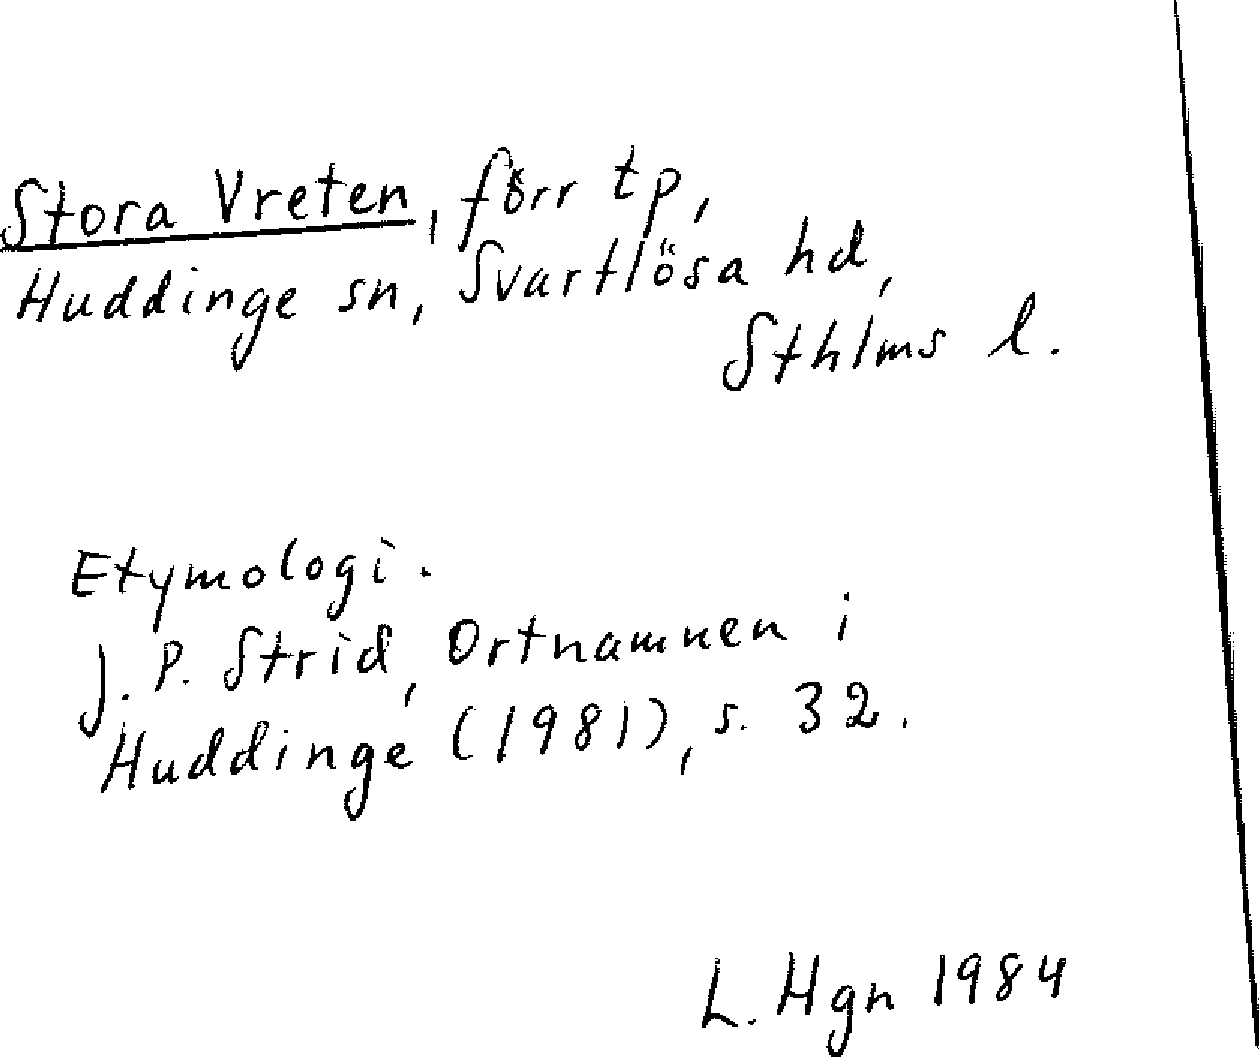 Stora Vreten, förr tp,
Huddinge sn, Svartlösa hd,
Sthlms l.
Etymologi.
J. P. Strid, Ortnamnen i
Huddinge (1981), s. 32.
L. Hgn 1984